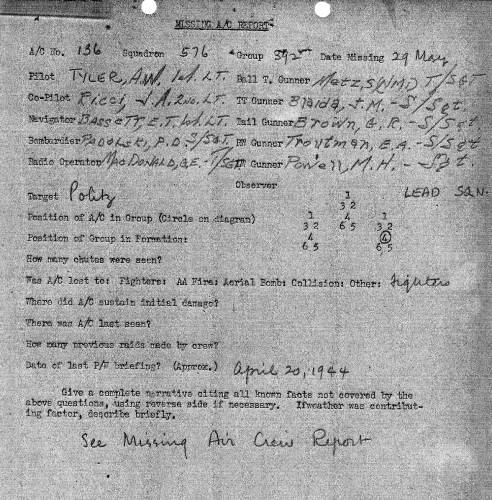 MISSING A/C REPORT
A/C No. 136 Squadron 576 Group 392nd Date Missing 29 May
Pilot TYLER, A.W. 1st. LT. Ball T. Gunner Metz, S/W/MD T/SGT
Co-Pilot Ricci, J.A. 2nd. LT. TT Gunner Blaida, J.M. - S/Sgt.
Navigator BASSETT, E.T. W. LT. Tail Gunner Brown, G.R. - S/Sgt
Bombardier PADOLSKI, P.D. S/SGT. RW Gunner Troutman, E.A. - S/Sgt.
Radio Operator MACDONALD, G.E. - T/SGT LW Gunner Powell, M.H. - Sgt.
Observer
Target Politz LEAD SQN.
1
3 2
Position of A/C in Group (Circle on diagram) 1 4 1
3 2 6 5 3 2
Position of Group in Formation: 4 4
6 5 6 5
How many chutes were seen?
Was A/C lost to: Fighters: AA Fire: Aerial Bomb: Collision: Other: Fighters
Where did A/C sustain initial damage?
Where was A/C last seen?
How many previous raids made by crew?
Date of last P/W briefing? (Approx.) April 20, 1944
Give a complete narrative citing all known facts not covered by the
above questions, using reverse side if necessary. Ifweather was contribut-
ing factor, describe briefly.
See Missing Air Crew Report